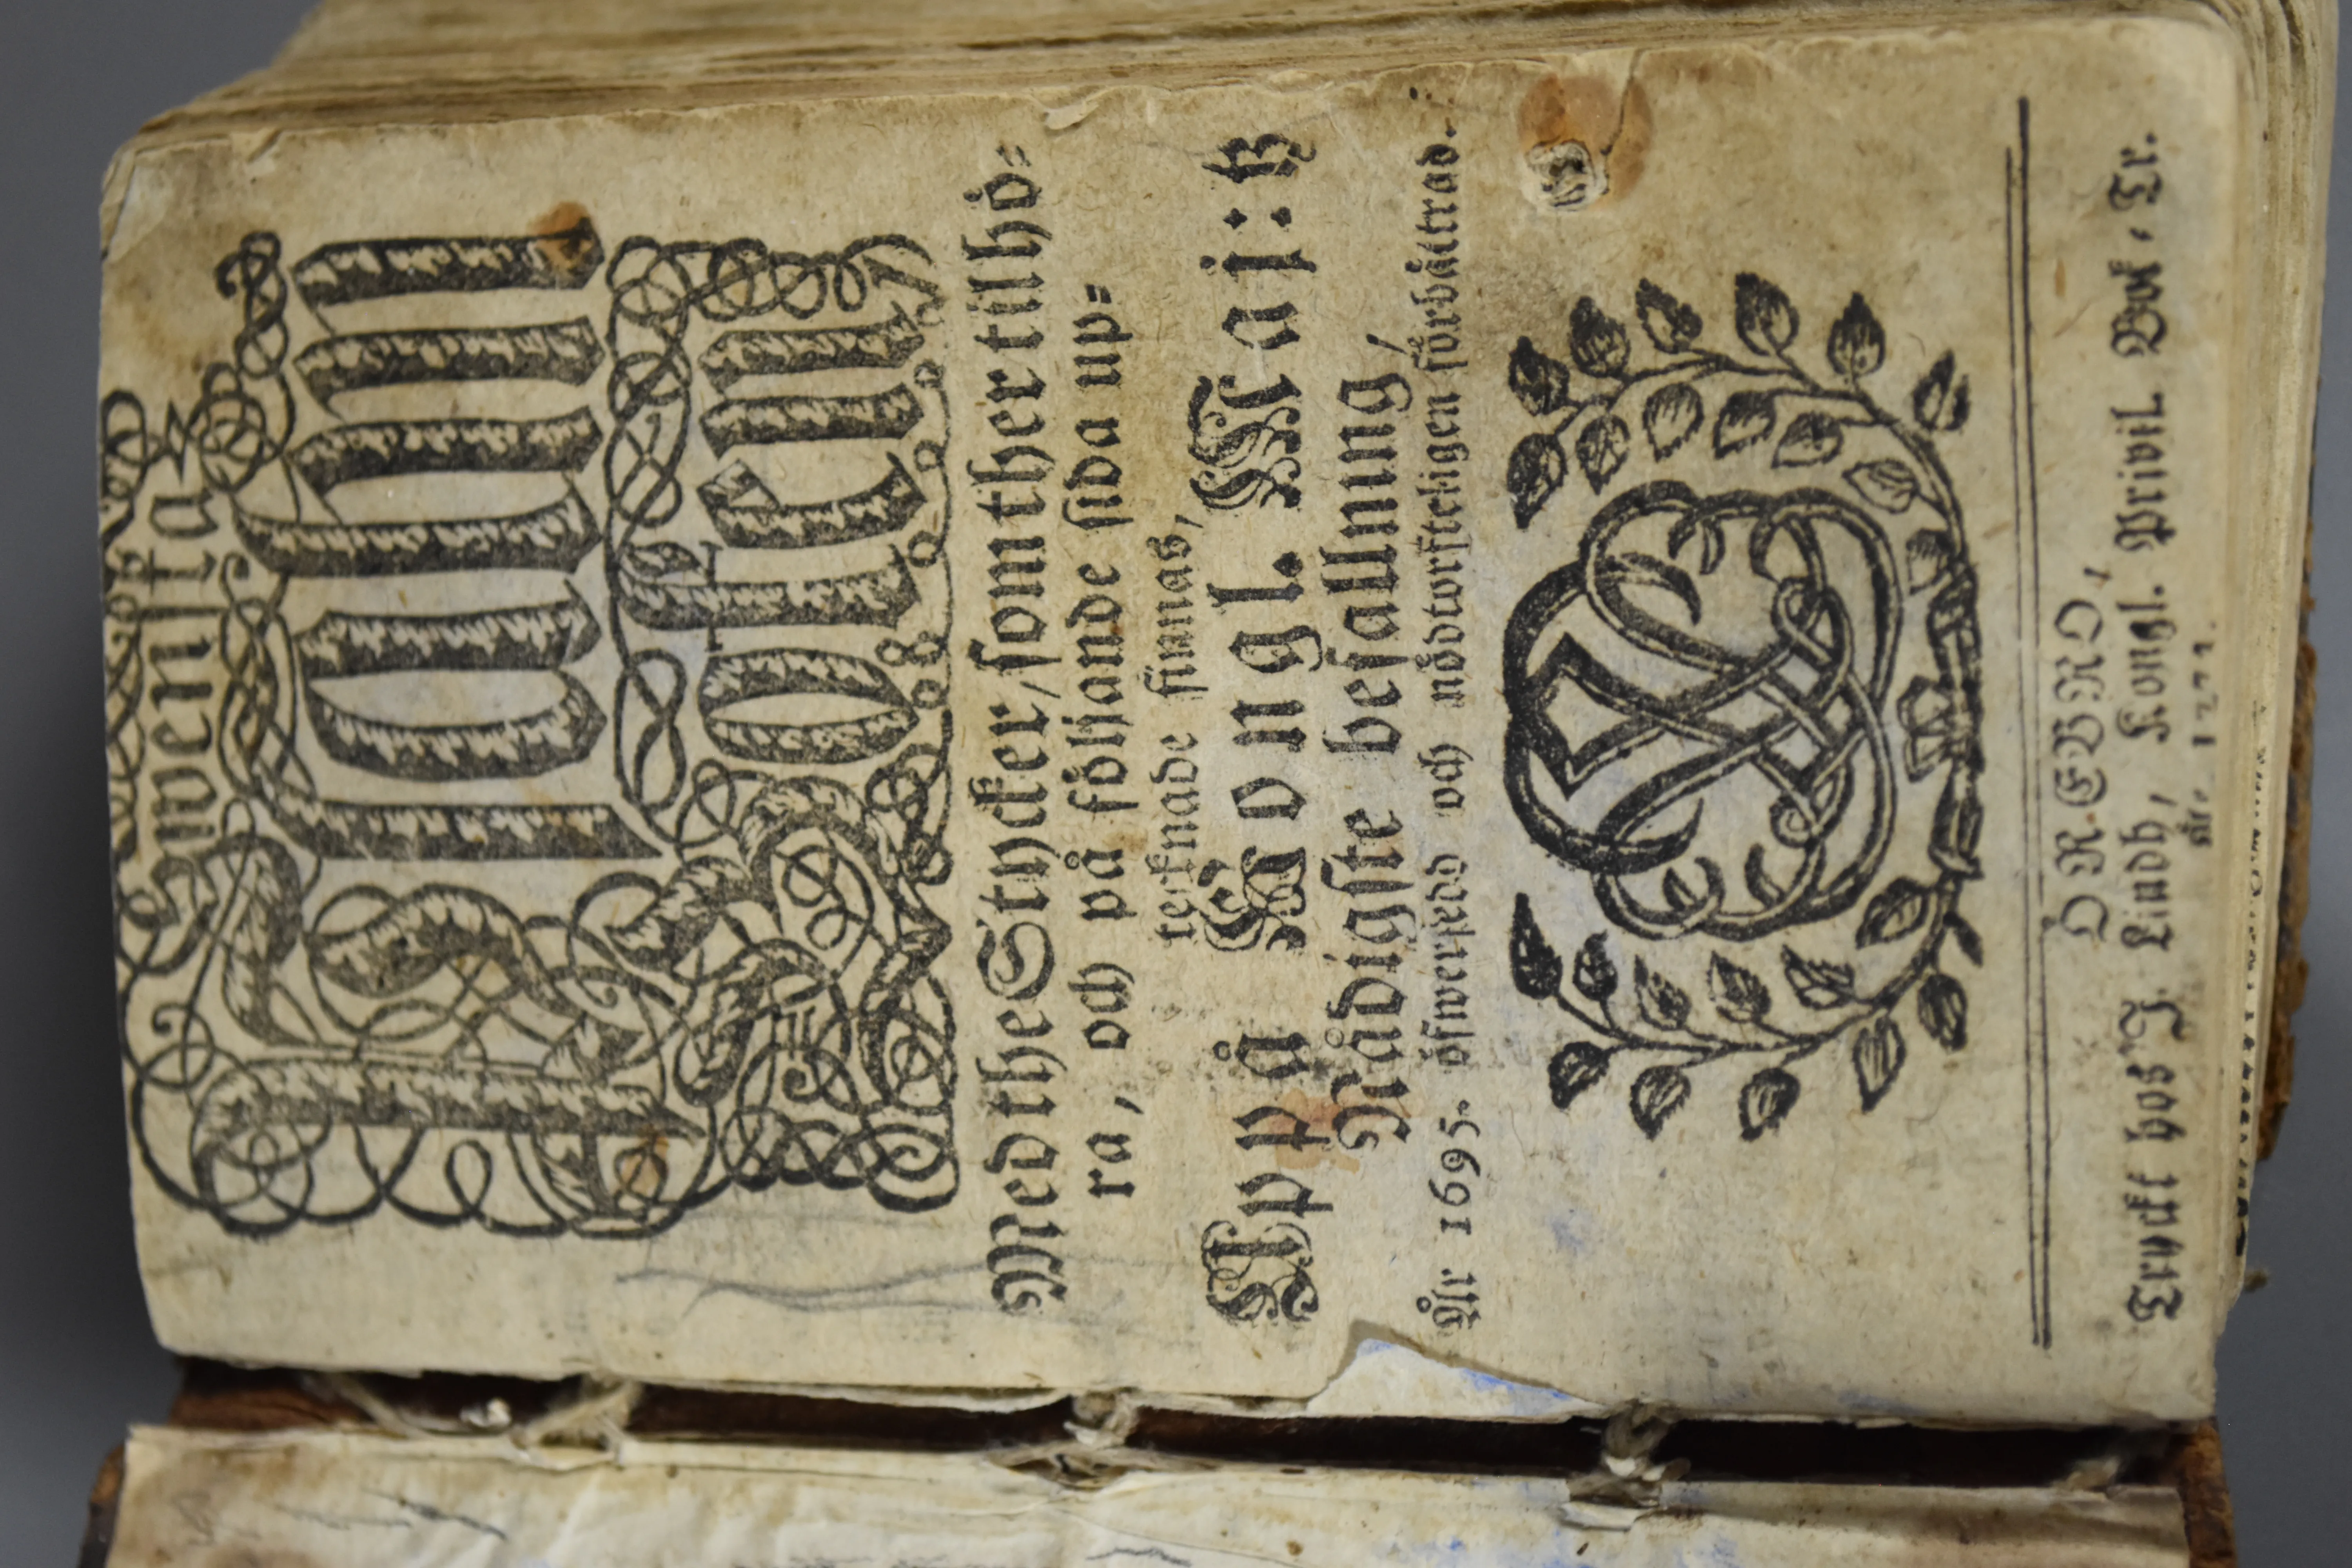 Swenska
Psalm
Boken
Med the Stycker/ som ther til hö=
ra, och på följande sida up=
tecknade finnas,
Uppå Kongl. Maj:tz
Nådigste befallning,
Åhr 1695. öfwersedd och nödtorfteligen förbättrad.
ÖREBRO,
Tryckt hos J. Lindh, Kongl. Privil. Bok-Tr.